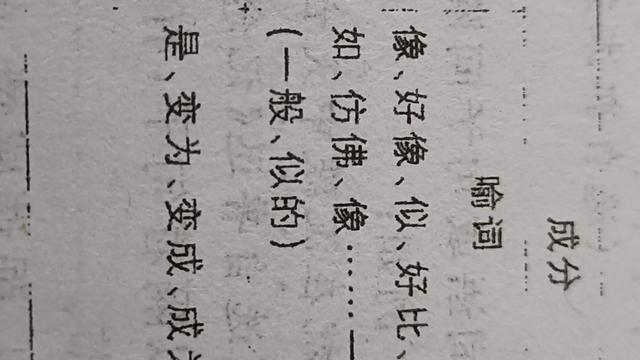 成分
喻词
像、好像、似、好比、
如、仿佛、像……一
(一般、似的)
是、变为、变成、成